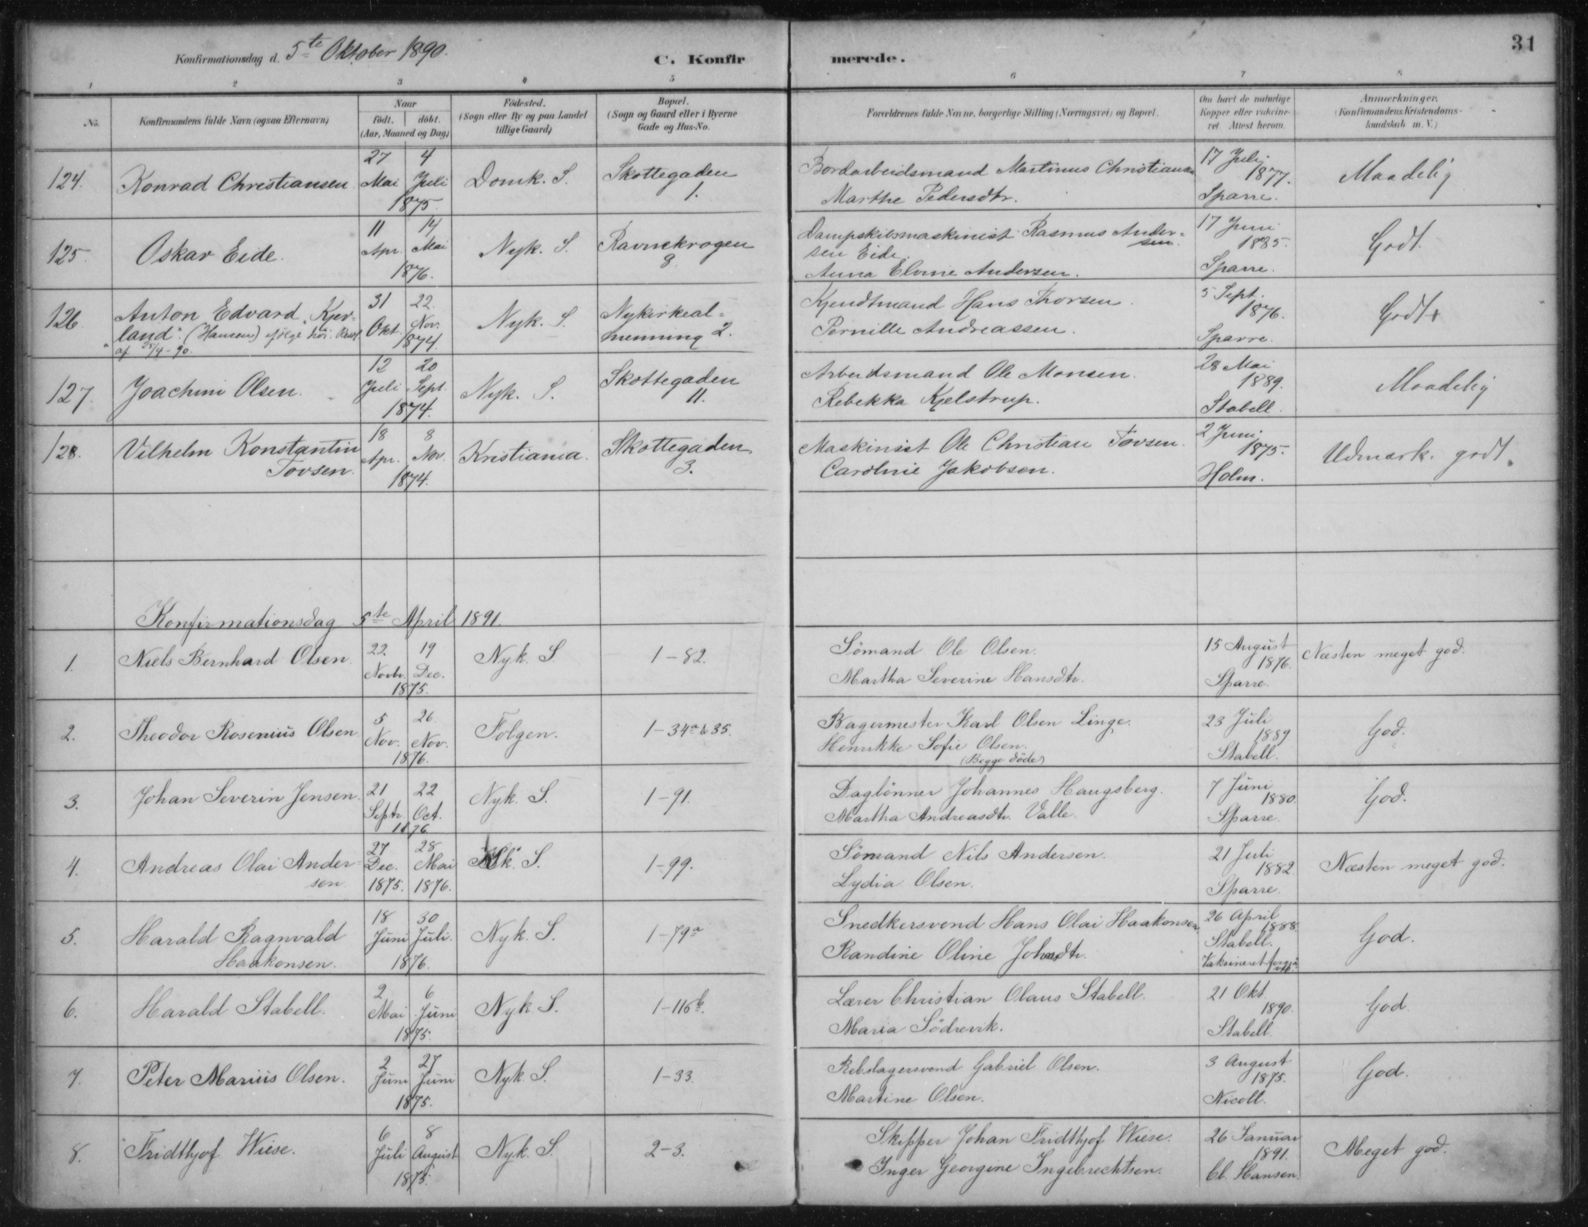 Konfirmationsdag d. 5te Oktober 1890.
C. Konfirmerede.
31
1 2 3 4 5 6 7 8
No.
Konfirmandens fulde Navn (ogsaa Efternavn)
Naar
Født. døbt.
(Aar, Maaned og Dag)
Fødested.
(Sogn eller By og paa Landet
tillige Gaard)
Bopæl.
(Sogn og Gaard eller i Byerne
Gade og Hus-No.
Forældrenes fulde Navne, borgerlige Stilling (Næringsvei) og Bopæl.
Om havt de naturlige
Kopper eller vaccine-
ret Attest herom.
Anmærkninger.
(Konfirmandens Kristendoms-
kundskab m. V.)
124. Konrad Christiansen 27 Mai 4 Juli 1875. Domk. S. Skottegaden 1.
Bordarbeidsmand Martinus Christiansen
Marthe Pedersdtr.
17 Juli 1877. Sparre. Maadelig
125. Oskar Eide. 11 Apr. 14 Mai 1876. Nyk. S. Ravnekrogen 8.
Dampskibsmaskinist Rasmus Andersen Eide.
Anna Elvine Andersen.
17 Juni 1885. Sparre. Godt.
126. Anton Edvard "Kjer-
land". (Hansen) ifølge
af 18/4-90.
31 Okt. 22 Nov. 1874. Nyk. S. Nykirkeal-
menning 2.
Kjendtmand Hans Thorsen.
Pernille Andreassen.
5 Sept. 1876. Sparre. Godt
127. Joachim Olsen. 12 Juli 20 Sept 1874. Nyk. S. Skottegaden 11.
Arbeidsmand Ole Monsen.
Rebekka Kjelstrup.
28 Mai 1889. Stabell. Maadelig
128. Vilhelm Konstantin
Tovsen.
18 Apr. 8 Nov. 1874. Kristiania. Skottegaden 3.
Maskinist Ole Christian Tovsen.
Caroline Jakobsen.
2 Juni 1875. Holm. Udmærk. godt.
Konfirmationsdag 5te April 1891.
1. Niels Bernhard Olsen. 22 Novbr. 19 Dec. 1875. Nyk. S 1-82.
Sømand Ole Olsen.
Martha Severine Hansdtr.
15 August 1876. Sparre. Næsten meget god.
2. Theodor Rosenius Olsen 5 Nov. 26 Nov. 1876. Følgen. 1-34a b 35.
Bagermester Karl Olsen Linge.
Henrikke Sofie Olsen.
(Begge døde)
23 Juli 1889 Stabell. God.
3. Johan Severin Jensen. 21 Septr. 22 Oct. 1876 Nyk. S. 1-91.
Daglønner Johannes Haugsberg.
Martha Andreasdtr. Valle.
7 Juni 1880. Sparre. God.
4. Andreas Olai Ander-
sen
27 Dec. 1875. 28 Mai 1876. Kk. S. 1-99.
Sømand Nils Andersen.
Lydia Olsen.
21 Juli 1882 Sparre. Næsten meget god.
5. Harald Ragnvald
Haakonsen.
18 Juni 30 Juli. 1876. Nyk. S. 1-79a
Snedkersvend Hans Olai Haakonsen
Randine Oline Johsdtr.
26 April 1888. Stabell. Vaksineret God.
6. Harald Stabell. 2 Mai 6 Juni 1875. Nyk. S. 1-116b.
Lærer Christian Olaus Stabell.
Maria Södrevik.
21 Okt. 1890. Stabell. God
7. Peter Marius Olsen. 2 Juni 27 Juni 1875. Nyk. S. 1-33.
Rebslagersvend Gabriel Olsen.
Martine Olsen.
3 August 1875. Nicoll. God.
8. Fridthjof Wiese. 6 Juli 8 August 1875. Nyk. S. 2-3.
Skipper Johan Fridthjof Wiese.
Inger Georgine Ingebrechtsen.
26 Januar 1891. Cl. Hansen. Meget god.